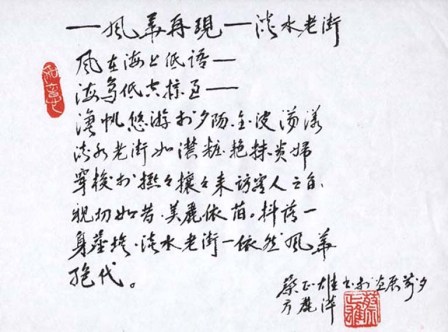 一風華再現一淡水老街
風在海上低語一
海鳥低空掠過一
漁帆悠游於夕陽金波蕩漾
淡水老街如濃粧艷抹貴婦
穿梭於熙々攘々來訪客人之間
親切如昔、美麗依舊。抖落一
身塵埃、淡水老街一依然風華
絕代。
蔡正雄